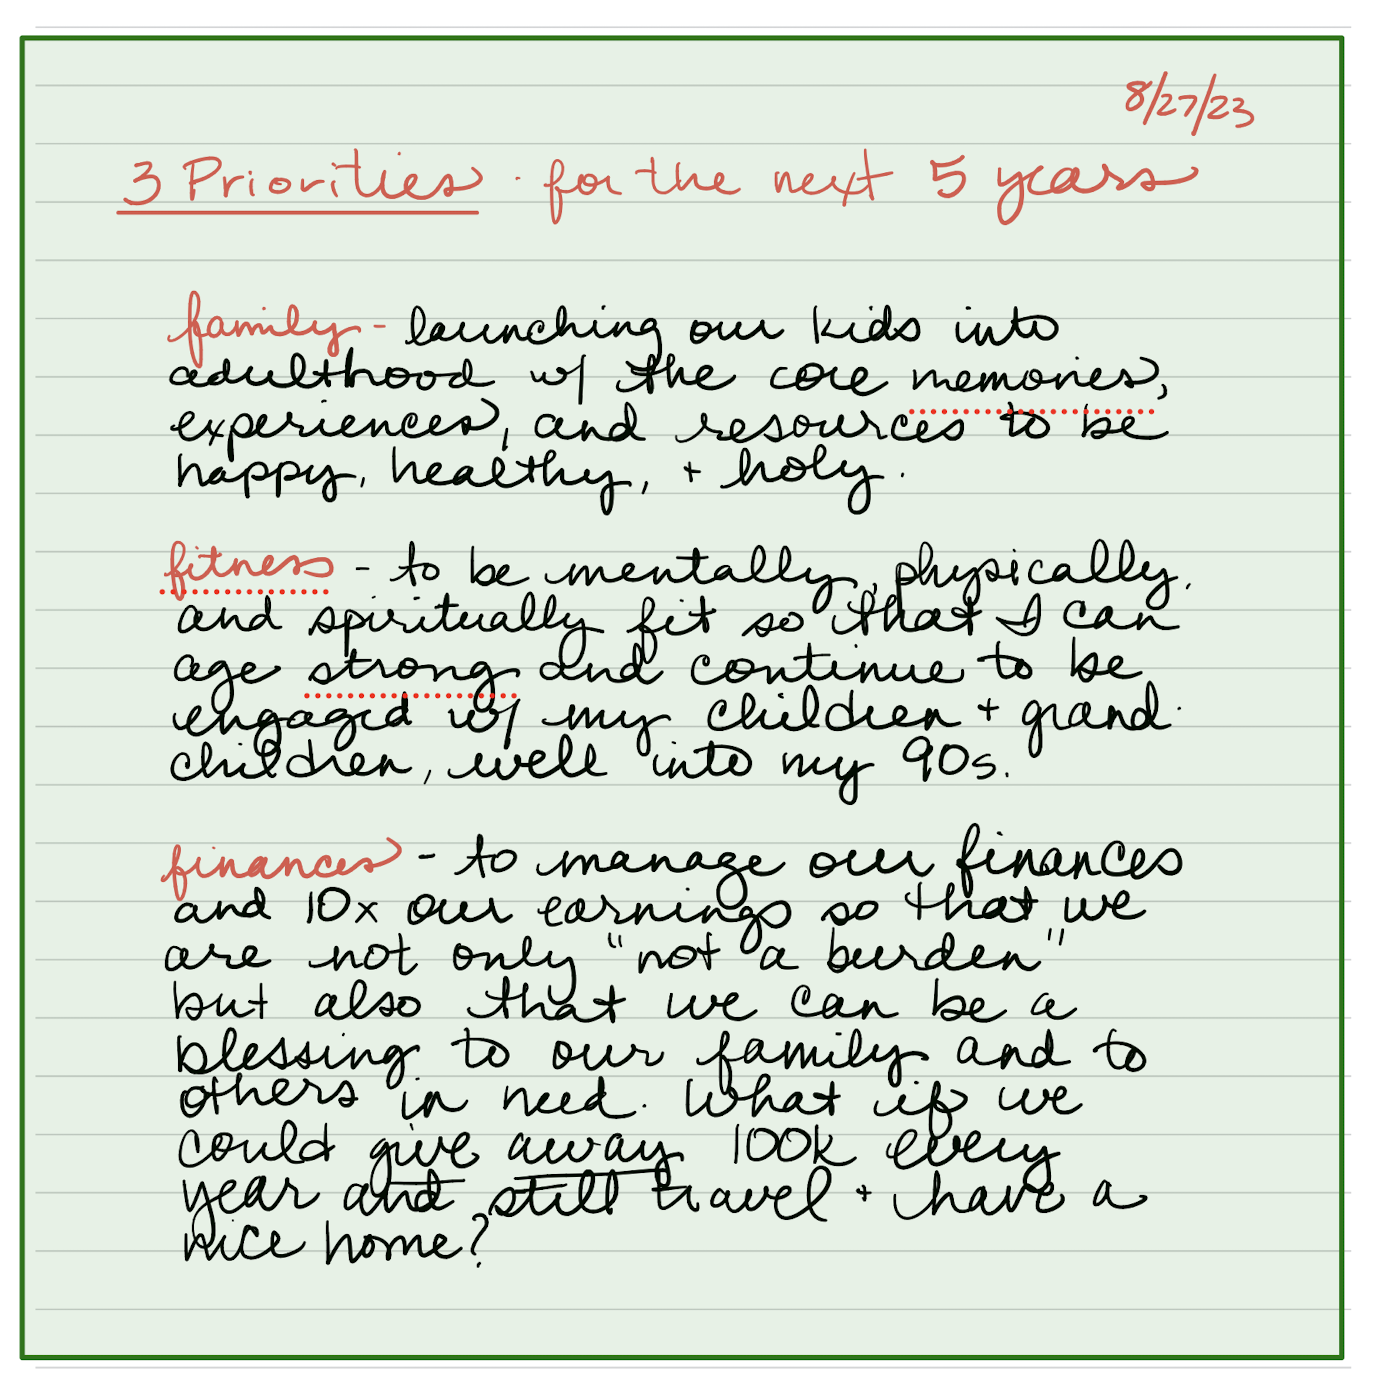 8/27/23
3 Priorities - for the next 5 years
family - launching our kids into
adulthood w/ the core memories,
experiences, and resources to be
happy, healthy, + holy.
fitness - to be mentally, physically,
and spiritually fit so that I can
age strong and continue to be
engaged w/ my children + grand-
children, well into my 90s.
finances - to manage our finances
and 10x our earnings so that we
are not only "not a burden"
but also that we can be a
blessing to our family and to
others in need. What if we
could give away 100k every
year and still travel + have a
nice home?